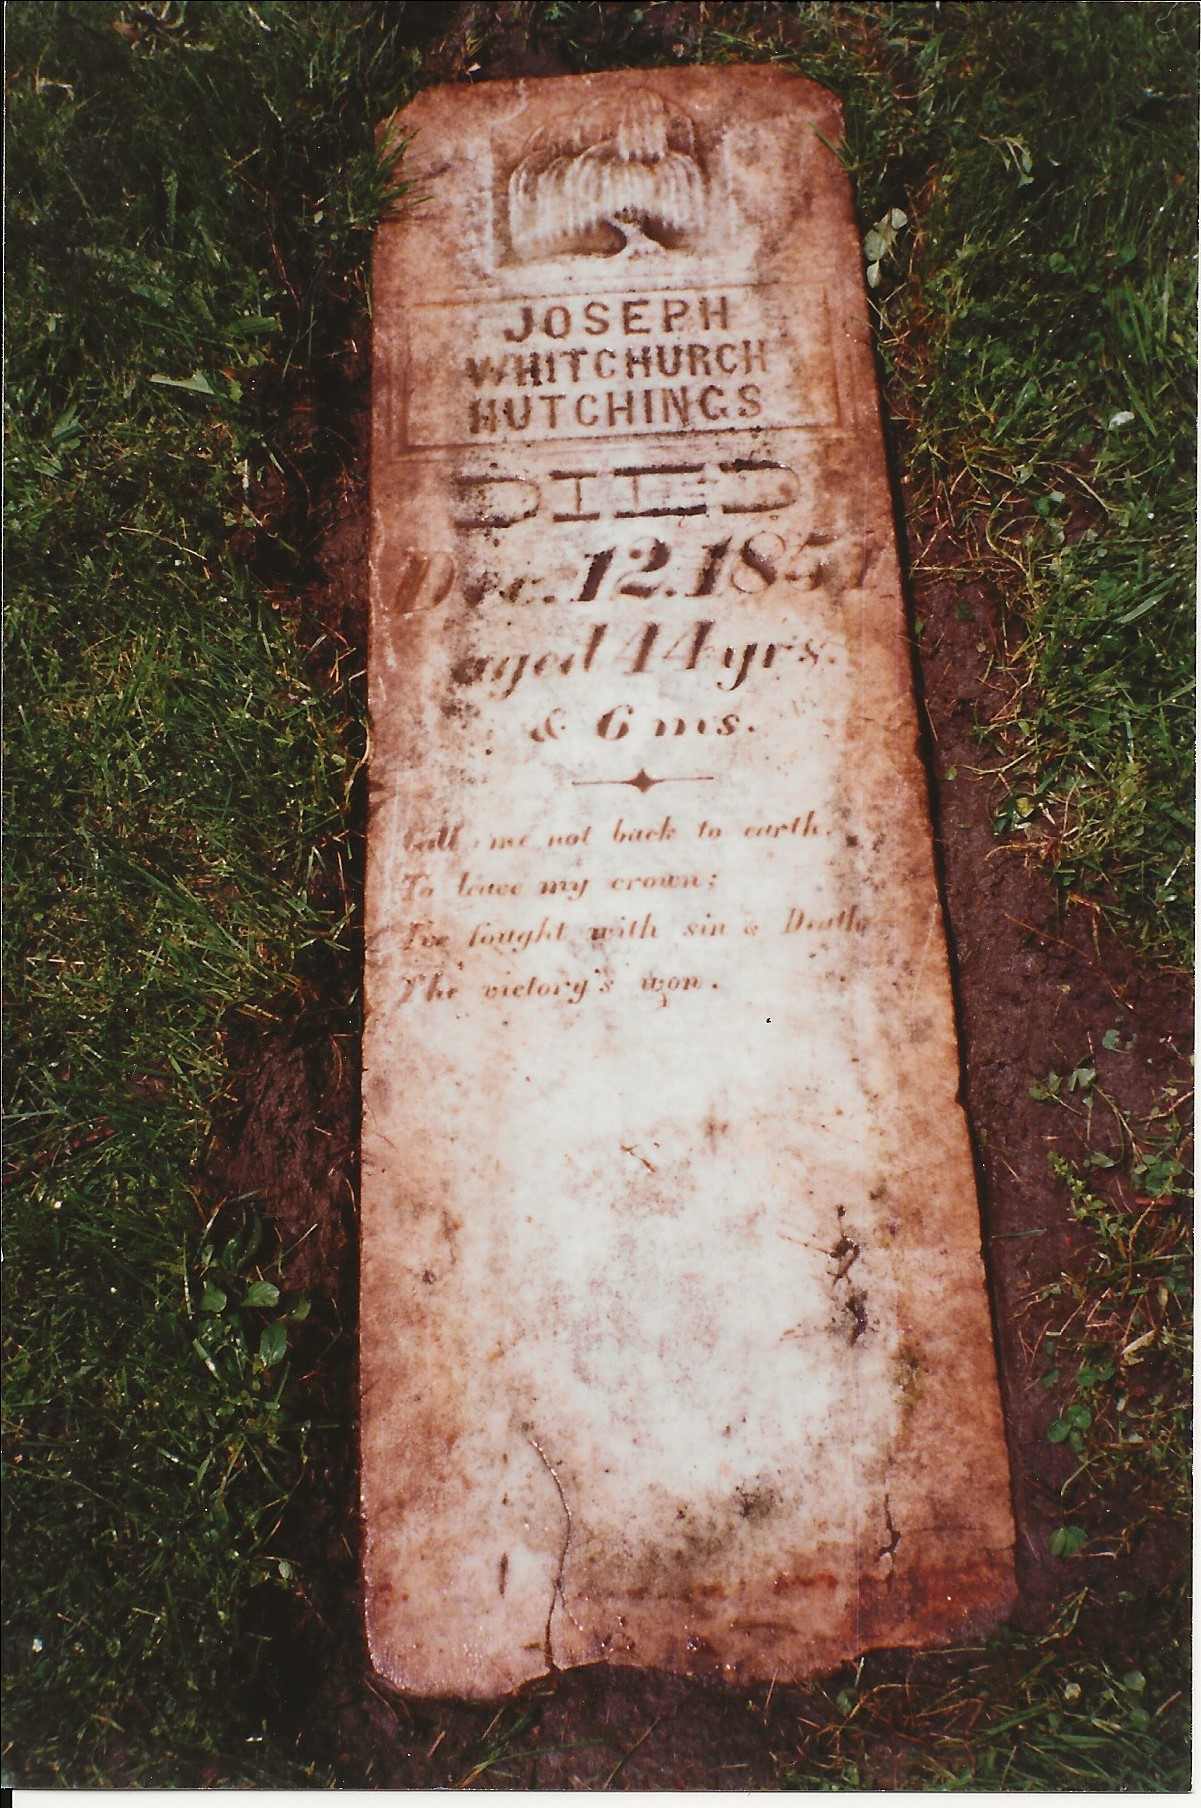 JOSEPH
WHITCHURCH
HUTCHINGS
DIED
Dec. 12. 1851
aged 44 yrs.
& 6 ms.
Call me not back to earth,
To leave my crown;
I've fought with sin & Death
The victory's won.